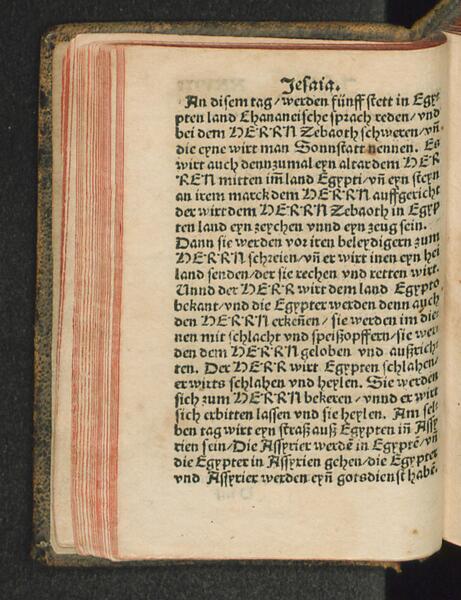 Jesaia.
An disem tag/werden fünff stett in Egyp
pten land Chananeische sprach reden/vnd
bei dem HERRN Zebaoth schweren/vñ
die eyne wirt man Sonnstatt nennen. Es
wirt auch dennzumal eyn altar dem HER
REN mitten iñ land Egypti/vñ eyn steyn
an irem marck dem HERRN auffgericht
der wirt dem HERRN Zebaoth in Egyp
ten land eyn zeychen vnnd eyn zeug sein.
Dann sie werden vor iren beleydigern zum
HERRN schreien/vñ er wirt inen eyn hei
land senden/der sie rechen vnd retten wirt.
Vnnd der HERR wirt dem land Egypto
bekant/vnd die Egypter werden denn auch
den HERRN erkeñen/sie werden im die
nen mit schlacht vnd speißopffern/sie wer
den dem HERRN geloben vnd außrich
ten. Der HERR wirt Egypten schlahen/
er wirts schlahen vnd heylen. Sie werden
sich zum HERRN bekeren/vnnd er wirt
sich erbitten lassen vnd sie heylen. Am sel
ben tag wirt eyn straß auß Egypten iñ Assy
rien sein/Die Assyrier werdē in Egyptē/vñ
die Egypter in Assyrien gehen/die Egypter
vnd Assyrier werden eyñ gotsdienst habē.